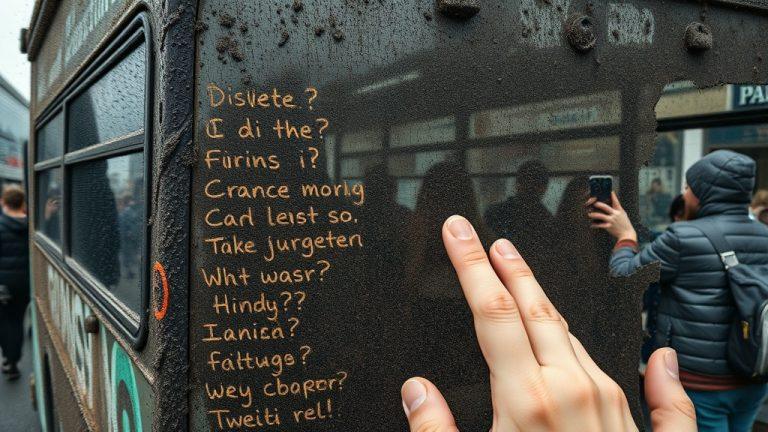 Disvete.?
I di the?
Fiirins i?
Crance morlıg
Card leist so.
Take jurgeten
Wht wasr?
Hindy??
Ianica?
faltugs?
wey cbapor?
Tweiti rel!
PA